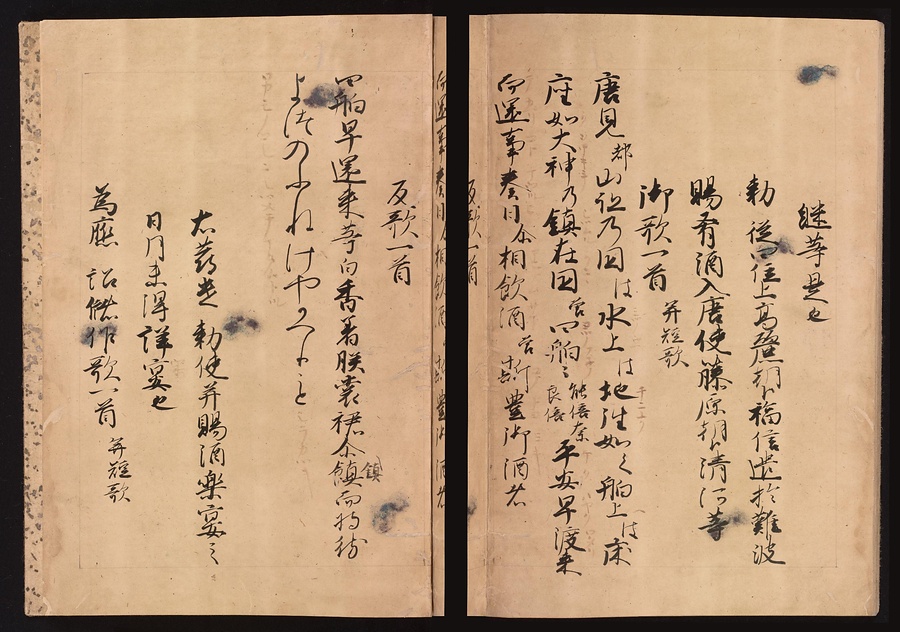 継華是也
勅従四位上高麗朝臣福信遣於難波
賜肴酒入唐使藤原朝臣清河等
御歌一首 并短歌
虚見都山跡乃国は水上は地徃如久舶上は床
座如大神乃鎮在国曽四舶々能倍奈良倍平安早渡来
而還事奏日尓相飲酒曽斯豊御酒者
反歌一首
四舶早還来等白香着朕裳裙尓鎮而将待
よつのふねはやかへりこと
右発遣 勅使并賜酒楽宴之
日月未得詳審也
為應 詔儲作歌一首 并短歌